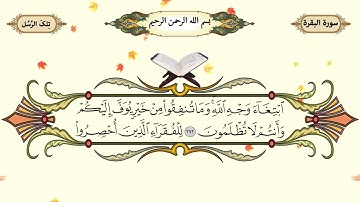 سورة البقرة
بسم الله الرحمن الرحيم
تلك الرُّسُل
ٱبۡتِغَآءَ وَجۡهِ ٱللَّهِۚ وَمَا تُنفِقُواْ مِنۡ خَيۡرٖ يُوَفَّ إِلَيۡكُمۡ
وَأَنتُمۡ لَا تُظۡلَمُونَ ٢٧٢ لِلۡفُقَرَآءِ ٱلَّذِينَ أُحۡصِرُواْ